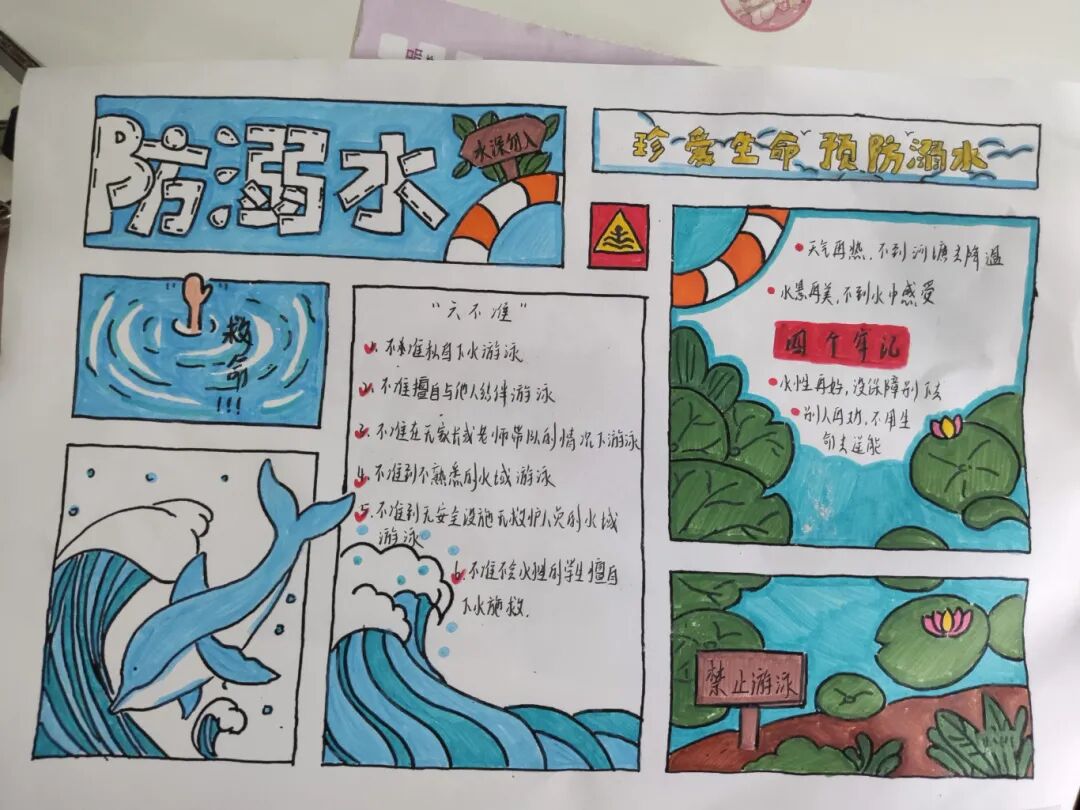 防溺水
水深勿入
珍爱生命 预防溺水
救命
!!!
"六不准"
1. 不准私自下水游泳
2. 不准擅自与他人结伴游泳
3. 不准在无家长或老师带队的情况下游泳
4. 不准到不熟悉的水域游泳
5. 不准到无安全设施无救护人员的水域
游泳
6. 不准不会水性的学生擅自
下水施救.
天气再热,不到河塘去降温
水景再美,不到水中感受
四个牢记
水性再好,没保障别下去
别人再劝,不用生
命去逞能
禁止游泳